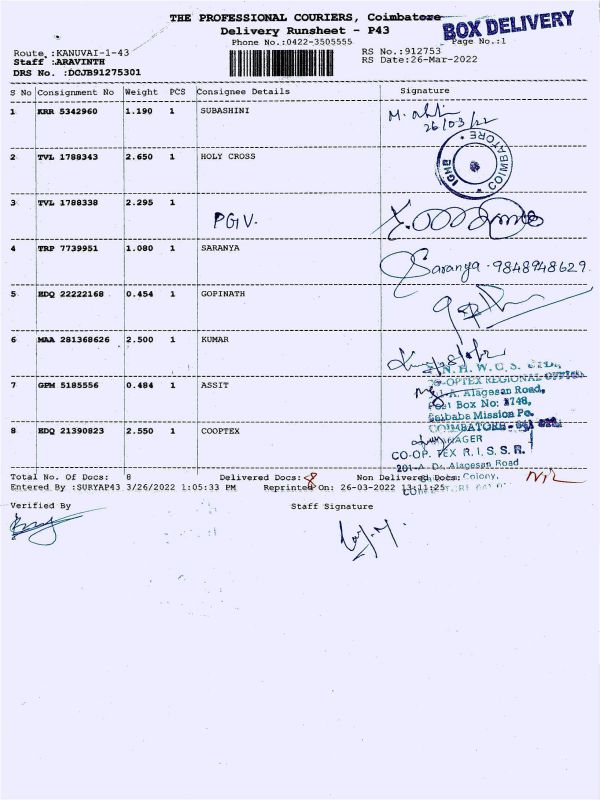 THE PROFESSIONAL COURIERS, Coimbatore
BOX DELIVERY
Delivery Runsheet - P43
Phone No.:0422-3505555
Page No.:1
Route :KANUVAI-1-43
RS No.:912753
Staff :ARAVINTH
RS Date:26-Mar-2022
DRS No. :DCJB91275301
S No Consignment No Weight PCS Consignee Details Signature
1 KRR 5342960 1.190 1 SUBASHINI
26/03/22
2 TVL 1788343 2.650 1 HOLY CROSS
COIMBATORE
3 TVL 1788338 2.295 1
PG1V.
4 TRP 7739951 1.080 1 SARANYA
Saranya - 9848948629
5 EDQ 22222168 0.454 1 GOPINATH
6 MAA 281368626 2.500 1 KUMAR
N.H.W.C.S. LTD.,
CO-OPTEX REGIONAL OFFICE
7 GPM 5185556 0.484 1 ASSIT
Alagesan Road,
Post Box No: 3748,
Saibaba Mission Po.
8 EDQ 21390823 2.550 1 COOPTEX
COIMBATORE
MANAGER
CO-OP. TEX R.I.S.S.R.
201-A Dr. Alagesan Road
Total No. Of Docs: 8 Delivered Docs: 8 Non Delivered Docs: NIL
Colony,
Entered By :SURYAP43 3/26/2022 1:05:33 PM Reprinted On: 26-03-2022 13:11:25
Verified By Staff Signature